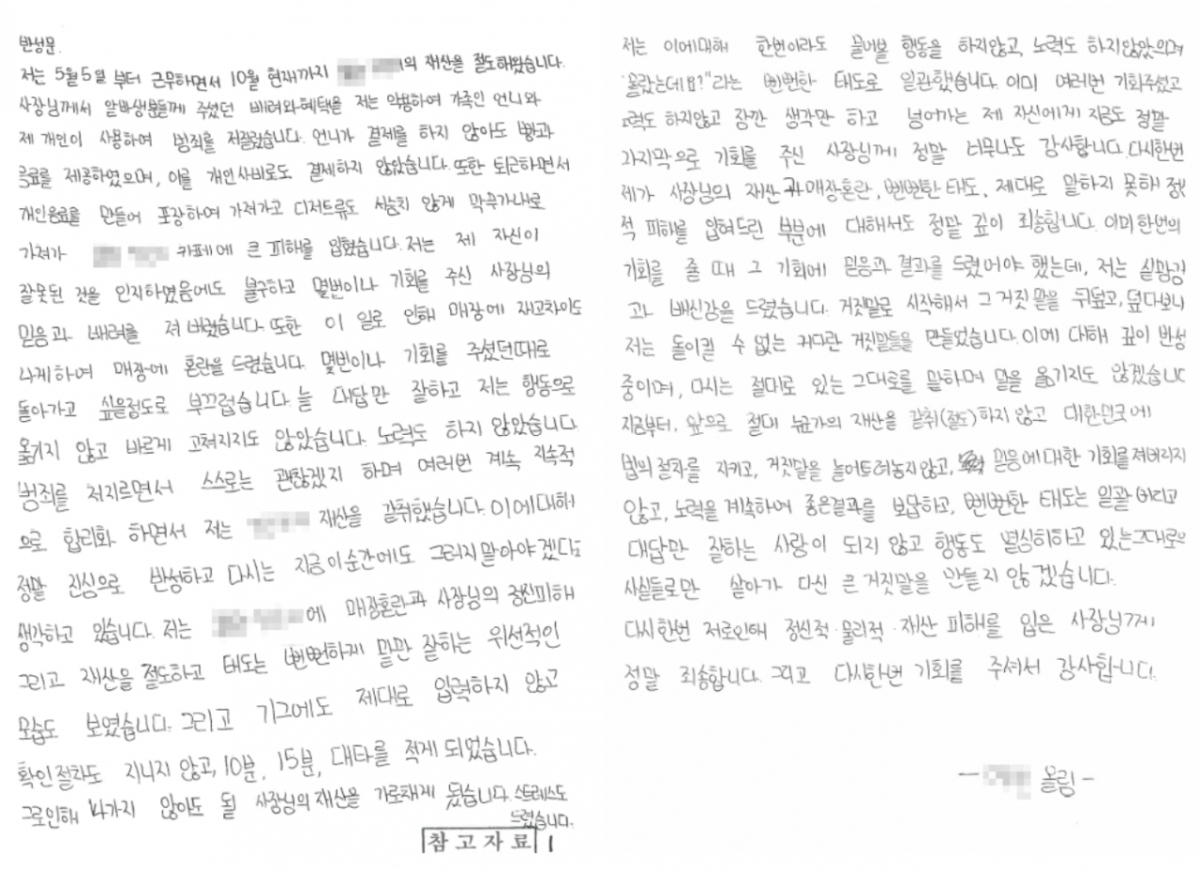 반성문.
저는 5월5일 부터 근무하면서 10월 현재까지 의 재산을 절도해왔습니다.
사장님께서 알바생분들께 주셨던 배려와혜택을 저는 악용하여 가족인 언니와
제 개인이 사용하여 범죄를 저질렀습니다. 언니가 결제를 하지 않아도 빵과
음료를 제공하였으며, 이를 개인사비로도 결제하지 않았습니다. 또한 퇴근하면서
개인음료를 만들어 포장하여 가져가고 디저트류도 서슴치 않게 막무가내로
가져가 카페에 큰 피해를 입혔습니다. 저는 제 자신이
잘못된 것을 인지하였음에도 불구하고 몇번이나 기회를 주신 사장님의
믿음과 배려를 져 버렸습니다. 또한 이 일로 인해 매장에 재고차이도
나게하여 매장에 혼란을 드렸습니다. 몇번이나 기회를 주셨던때로
돌아가고 싶을정도로 부끄럽습니다. 늘 대답만 잘하고 저는 행동으로
옮기지 않고 바르게 고쳐지지도 않았습니다. 노력도 하지 않았습니다.
범죄를 저지르면서 스스로는 괜찮겠지 하며 여러번 계속 지속적
으로 합리화 하면서 저는 재산을 갈취했습니다. 이에대해
정말 진심으로 반성하고 다시는 지금이순간에도 그러지말아야겠다고
생각하고 있습니다. 저는 에 매장혼란과 사장님의 정신피해
그리고 재산을 절도하고 태도는 뻔뻔하게 말만 잘하는 위선적인
모습도 보였습니다. 그리고 기그에도 제대로 입력하지 않고
확인절차도 지니지 않고, 10분, 15분, 대타를 적게 되었습니다.
그로인해 나가지 않아도 될 사장님의재산을 가로채게 됐습니다. 스트레스도
드렸습니다.
참고자료 1
저는 이에대해 한번이라도 물어볼 행동을 하지않고, 노력도 하지않았으며
"몰랐는데요?"라는 뻔뻔한 태도로 일관했습니다. 이미 여러번 기회주셨고
노력도 하지않고 잠깐 생각만 하고 넘어가는 제 자신에게 지금도 정말
마지막으로 기회를 주신 사장님께 정말 너무나도 감사합니다. 다시한번
제가 사장님의 재산과 매장혼란, 뻔뻔한 태도, 제대로 말하지 못해 정신
적 피해를 입혀드린 부분에 대해서도 정말 깊이 죄송합니다. 이미한번의
기회를 줄 때 그 기회에 믿음과 결과를 드렸어야 했는데, 저는 실망감
과 배신감을 드렸습니다. 거짓말로 시작해서 그 거짓말을 뒤덮고, 덮다보니
저는 돌이킬 수 없는 커다란 거짓말들을 만들었습니다. 이에 대해 깊이 반성
중이며, 다시는 절대로 있는 그대로를 말하며 말을 옮기지도 않겠습니다
지금부터, 앞으로 절대 누군가의 재산을 갈취(절도)하지 않고 대한민국에
법의 절차를 지키고, 거짓말을 늘어트려놓지않고, 믿음에 대한 기회를 져버리지
않고, 노력을 계속하여 좋은결과를 보답하고, 뻔뻔한 태도는 일괄 버리고
대답만 잘하는 사람이 되지 않고 행동도 열심히하고 있는그대로의
사실들로만 살아가 다신 큰 거짓말을 만들지 않겠습니다.
다시한번 저로인해 정신적·물리적·재산 피해를 입은 사장님께
정말 죄송합니다. 그리고 다시한번 기회를 주셔서 감사합니다.
- 올림 -